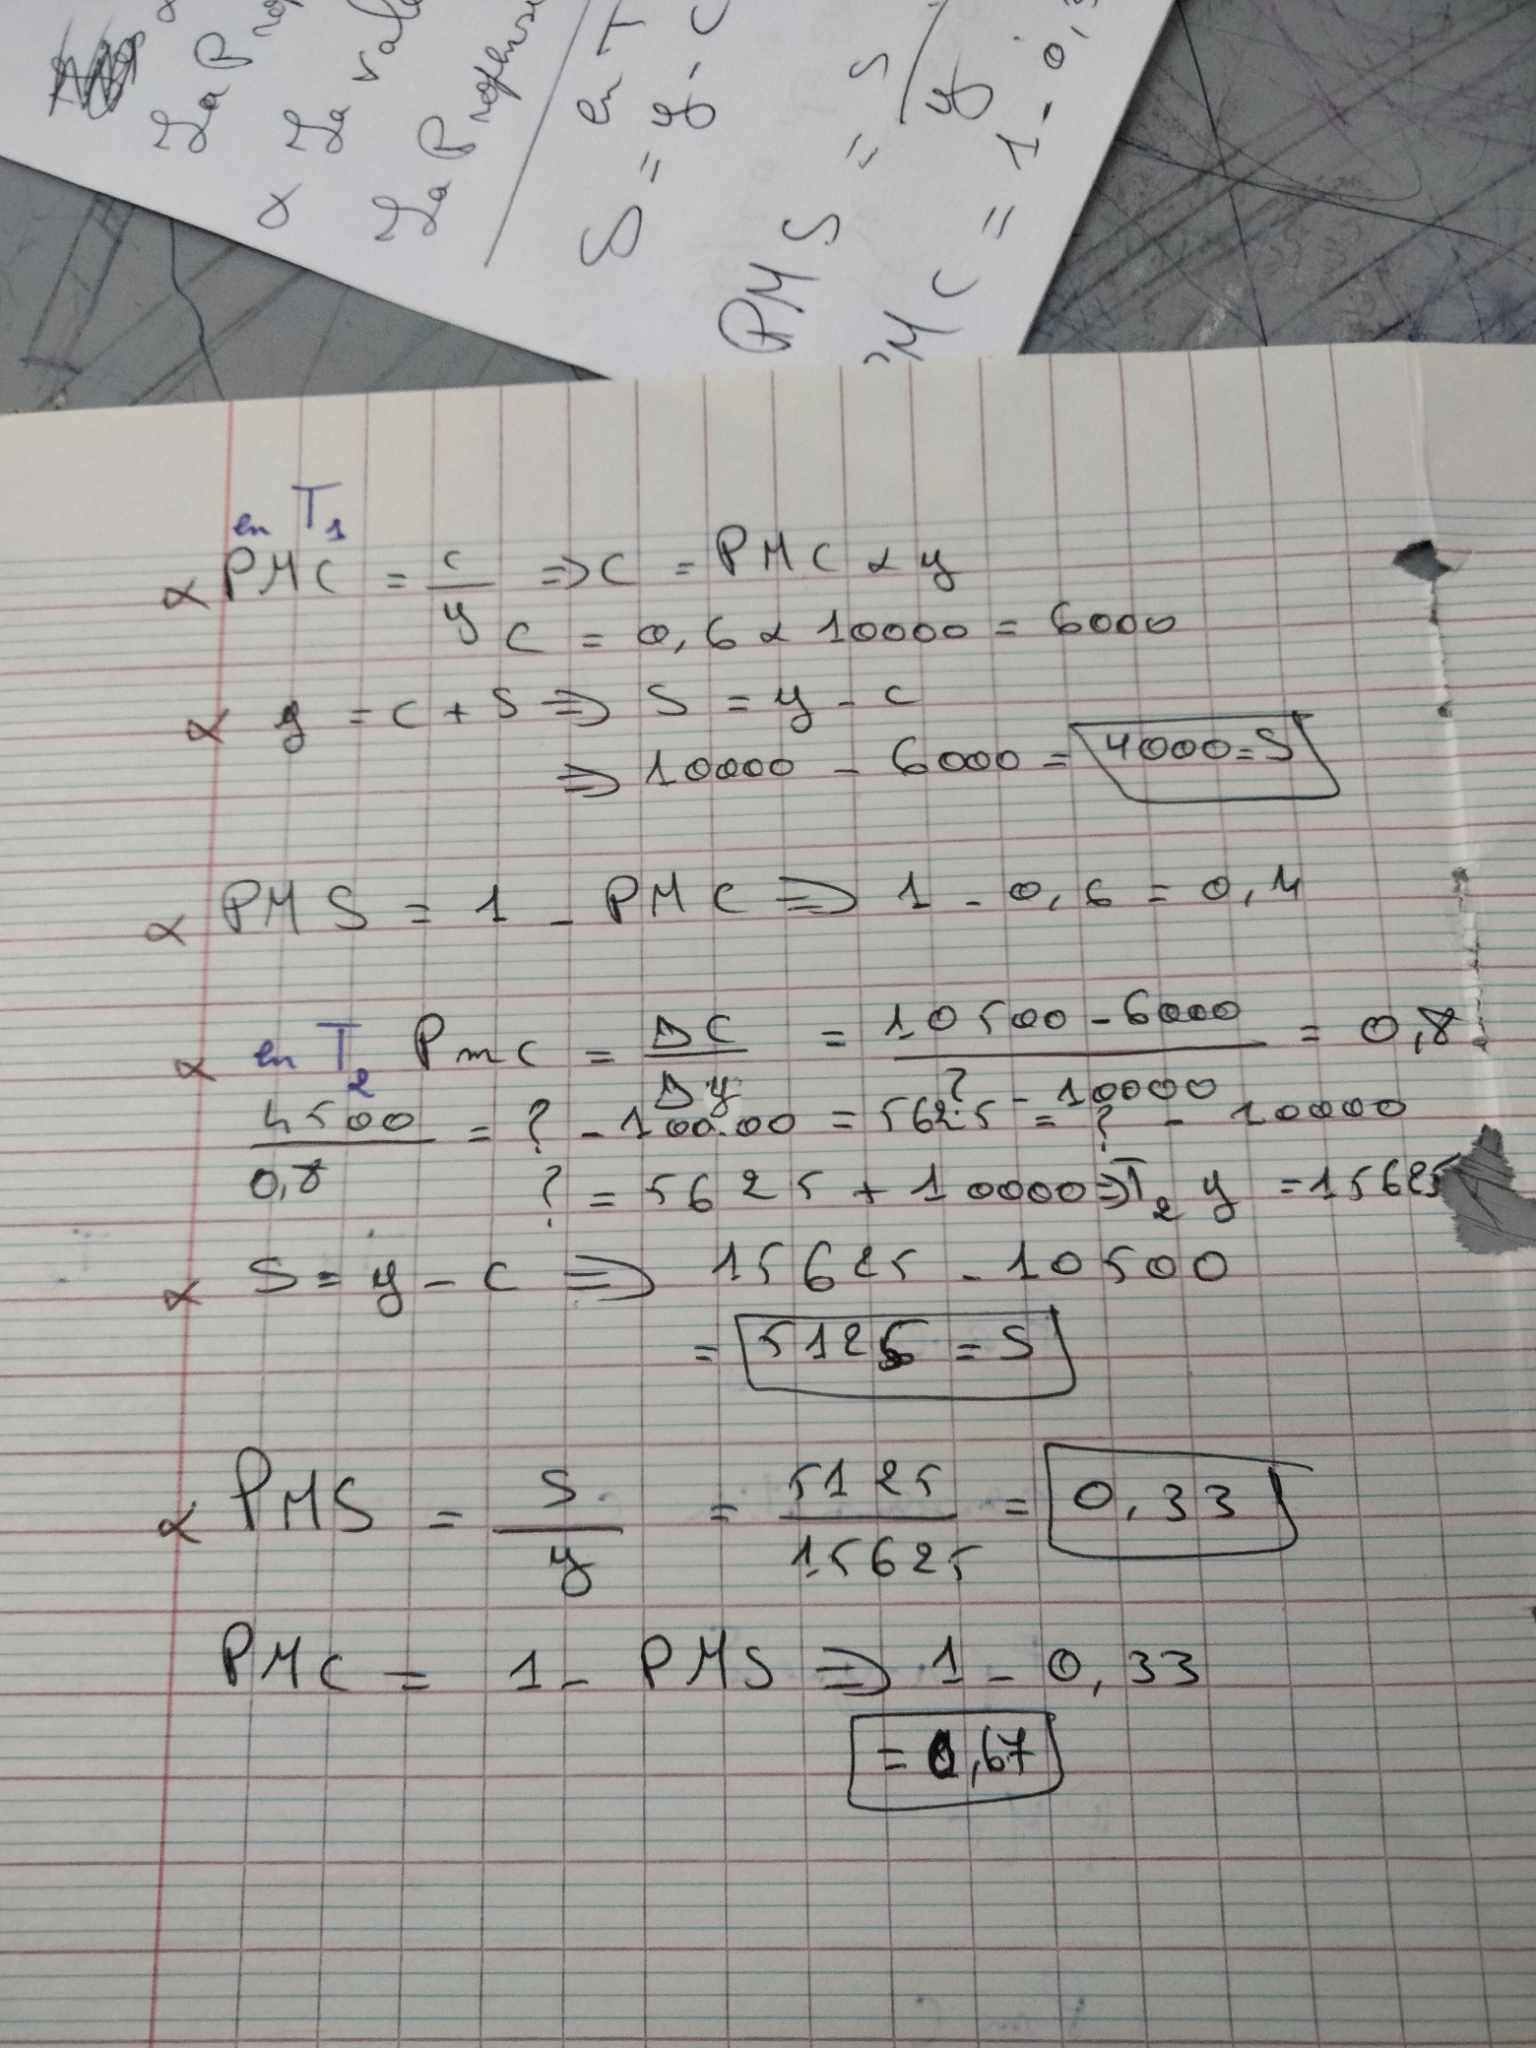 La Prop
La vale
La Propens
en T
S = y - C
PMS = S / y
MC = 1 - 0,3
en T1
× PMC = c / y => C = PMC × y
C = 0,6 × 10000 = 6000
× y = C + S => S = y - c
=> 10000 - 6000 = 4000 = S
× PMS = 1 - PMC => 1 - 0,6 = 0,4
× en T2 PmC = ΔC / Δy = 10500 - 6000 / ? - 10000 = 0,8
4500 / 0,8 = ? - 10000 = 5625 = ? - 10000
? = 5625 + 10000 => T2 y = 15625
× S = y - C => 15625 - 10500
= 5125 = S
× PMS = S / y = 5125 / 15625 = 0,33
PMC = 1 - PMS => 1 - 0,33
= 0,67